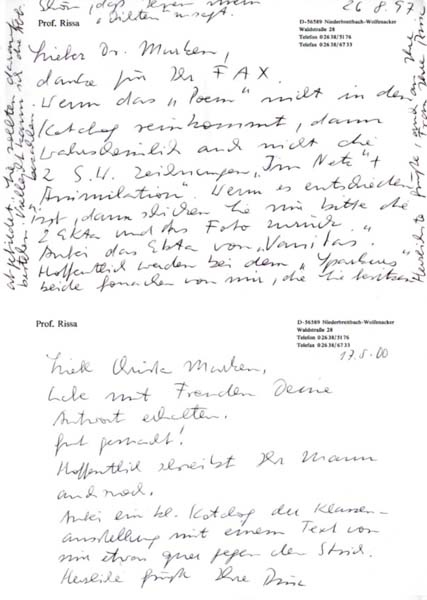 schön, das
Prof. Rissa
26.8.97
D-56589 Niederbreitbach-Wolfenacker
Waldstraße 28
Telefon 0 26 38/51 76
Telefax 0 26 38/67 33
Lieber Dr. Marken,
danke für Ihr FAX.
Wenn das „Poem" nicht in den
Katalog reinkommt, dann
wahrscheinlich auch nicht die
2 S.W. Zeichnungen „Im Netz" +
„Animilation". Wenn es entschieden
ist, dann schicken Sie mir bitte die
2 Ektas und das Foto zurück.
Anbei das Ekta von „Vanitas".
Hoffentlich werden bei dem
beide von mir, die Sie besitzen
abgebildet. Sie sollten
bestellen. Vielleicht kann ich die
Herzliche Grüße, auch an Ihre
Frau Ihre Rissa
Prof. Rissa
D-56589 Niederbreitbach-Wolfenacker
Waldstraße 28
Telefon 0 26 38/51 76
Telefax 0 26 38/67 33
17.5.00
Liebe Christa Marken,
habe mit Freuden Deine
Antwort erhalten.
Gut gemacht!
Hoffentlich schreibst Ihr Mann
auch noch.
Anbei ein kl. Katalog der Klassen-
ausstellung mit einem Text von
mir etwas quer gegen den Strich.
Herzliche Grüße Ihre Rissa